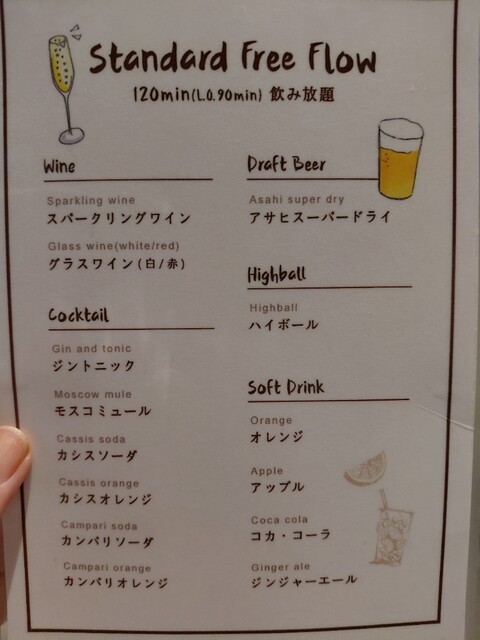 Standard Free Flow
120min(L.O.90min) 飲み放題
Wine
Sparkling wine
スパークリングワイン
Glass wine(white/red)
グラスワイン(白/赤)
Cocktail
Gin and tonic
ジントニック
Moscow mule
モスコミュール
Cassis soda
カシスソーダ
Cassis orange
カシスオレンジ
Campari soda
カンパリソーダ
Campari orange
カンパリオレンジ
Draft Beer
Asahi super dry
アサヒスーパードライ
Highball
Highball
ハイボール
Soft Drink
Orange
オレンジ
Apple
アップル
Coca cola
コカ・コーラ
Ginger ale
ジンジャーエール